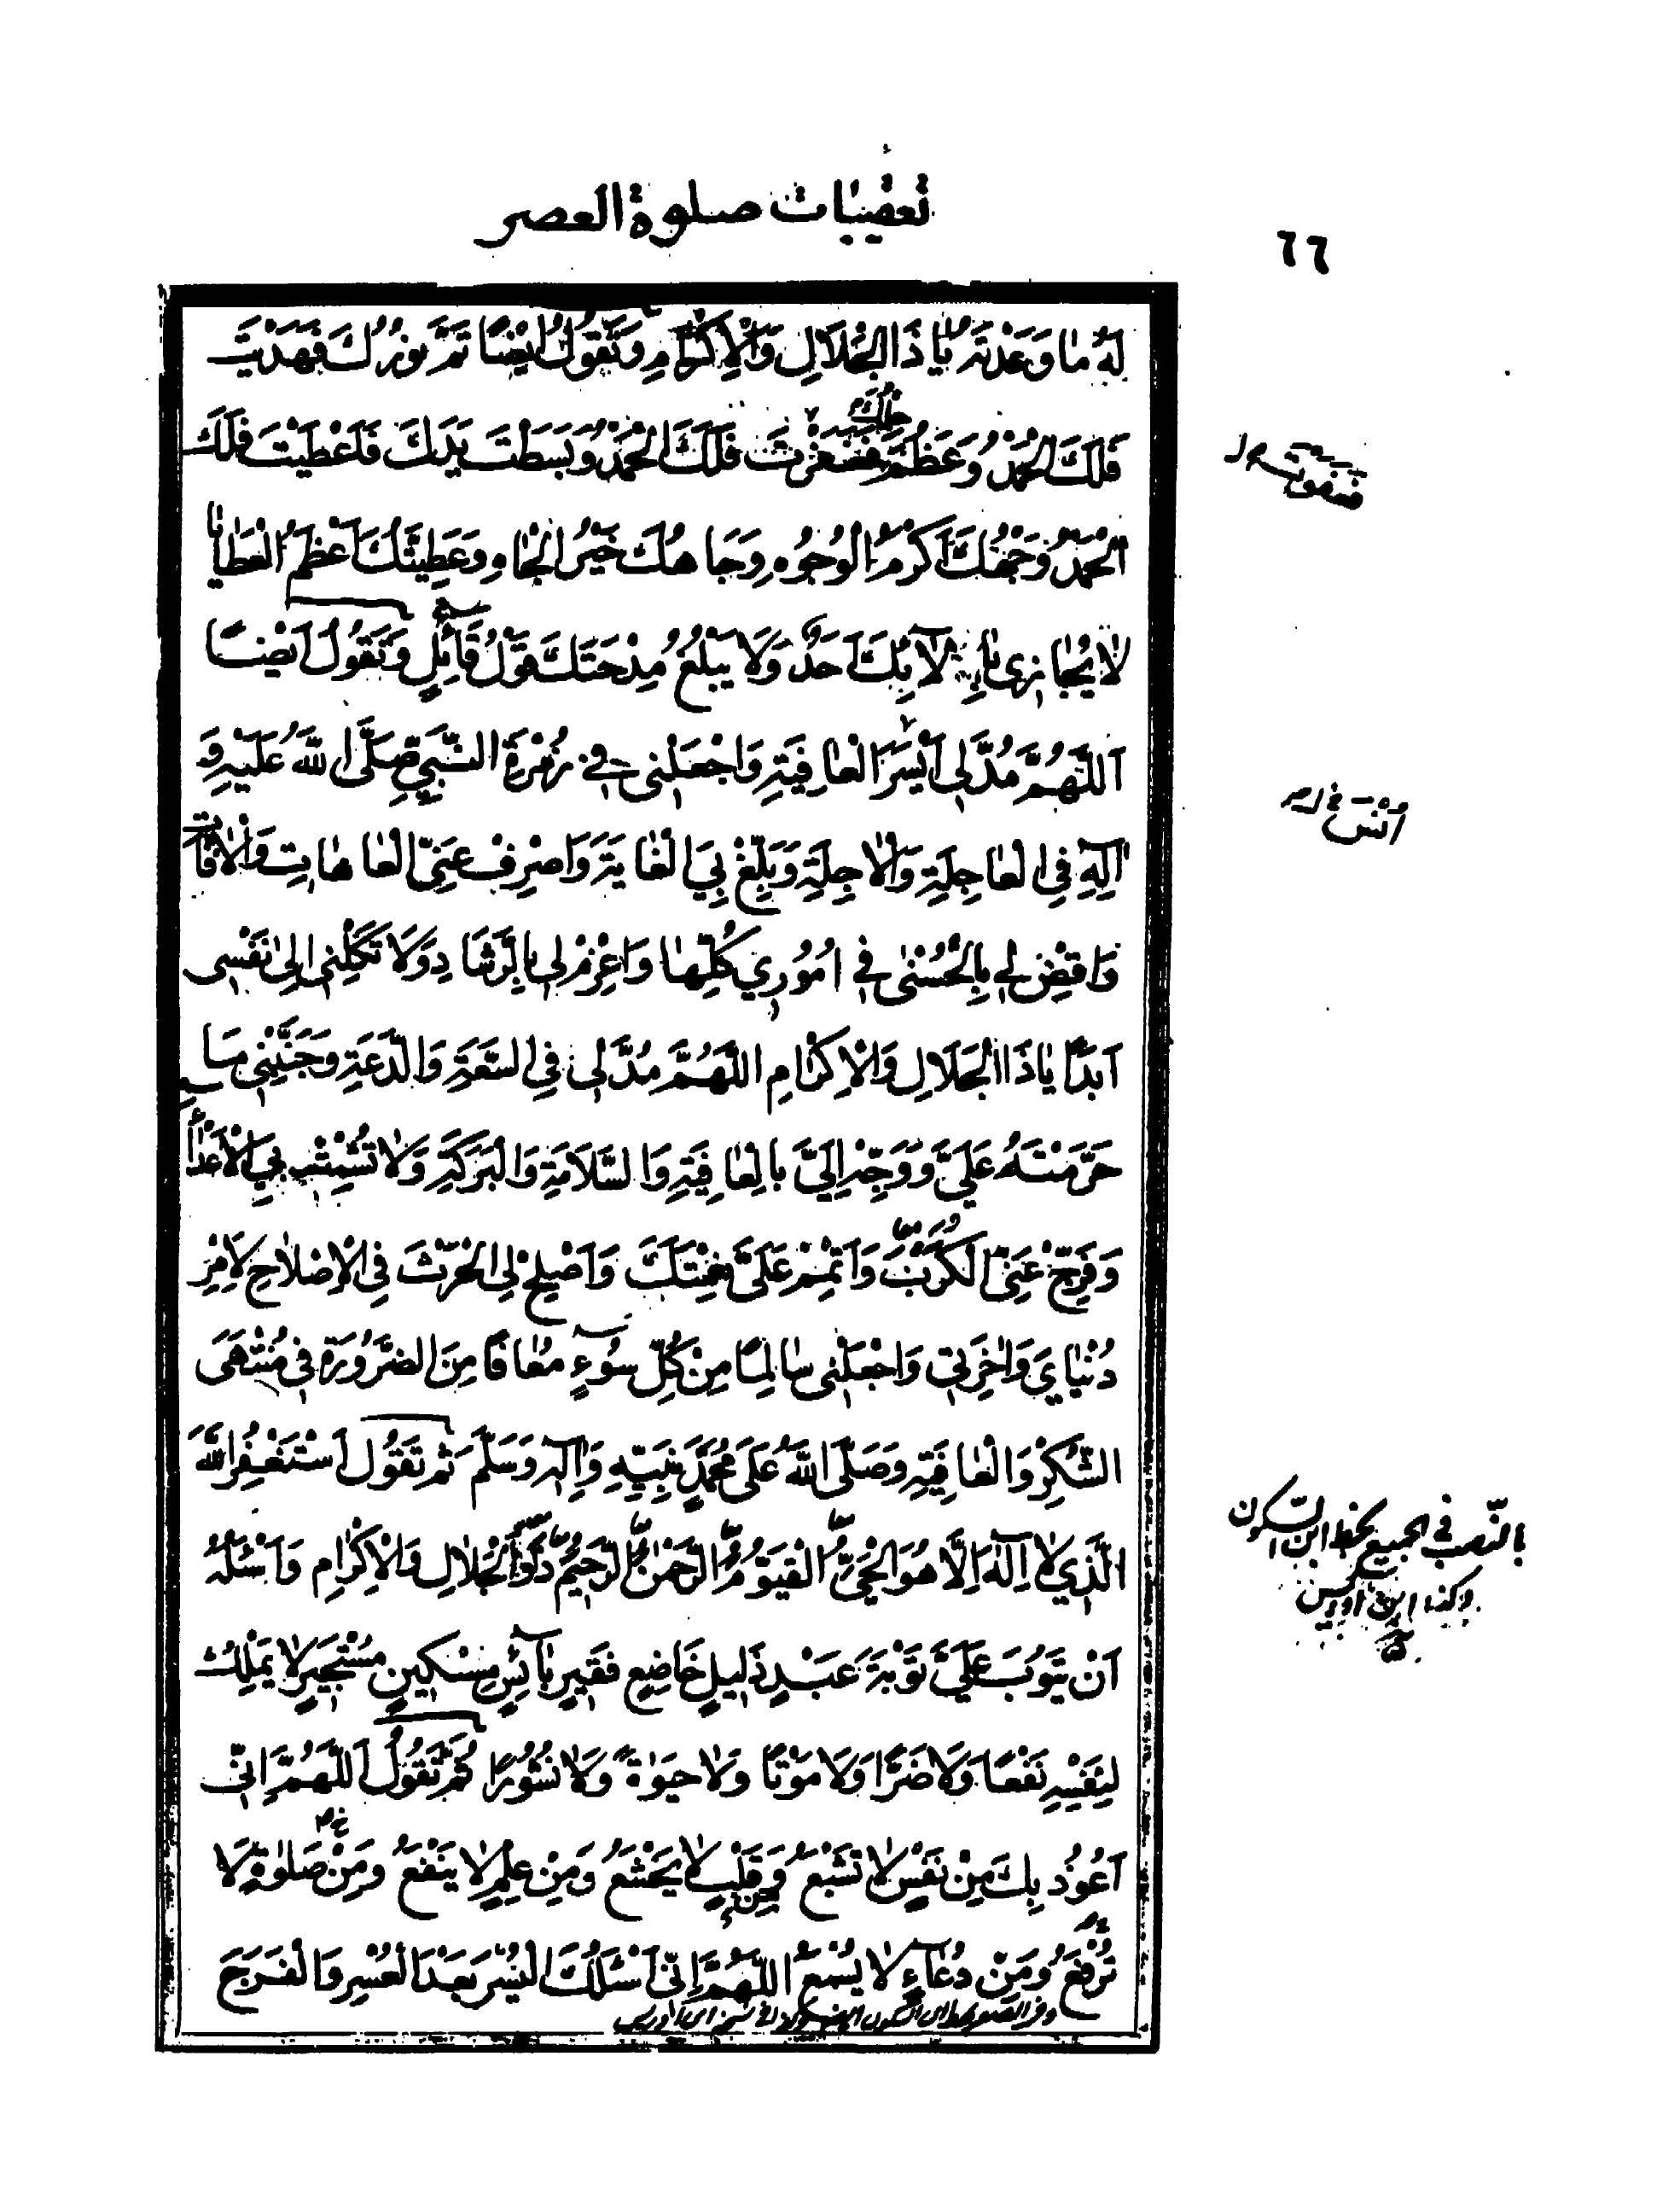 ٦٦
تعقيبات صلوة العصر
لَهُ مٰا وَعَدْتَهُ يٰا ذَا الْجَلَالِ وَالْاِكْرٰامِ وَتَقُولُ اَيْضًا تَمَّ نُورُكَ فَهَدَيْتَ
فَلَكَ الْحَمْدُ وَعَظُمَ حِلْمُكَ فَغَفَرْتَ فَلَكَ الْحَمْدُ وَبَسَطْتَ يَدَكَ فَاَعْطَيْتَ فَلَكَ
الْحَمْدُ وَجْهُكَ اَكْرَمُ الْوُجُوهِ وَجَاهُكَ خَيْرُ الْجٰاهِ وَعَطِيَّتُكَ اَعْظَمُ الْعَطٰايٰا
لٰا يُجٰازى بِاٰلٰآئِكَ اَحَدٌ وَلَا يَبْلُغُ مِدْحَتَكَ قَوْلُ قَآئِلٍ وَتَقُولُ اَيْضًا
اَللّٰهُمَّ مُدَّ لِى اَيْسَرَ الْعٰافِيَةِ وَاجْعَلْنِى فِي زُمْرَةِ النَّبِيِّ صَلَّى اللّٰهُ عَلَيْهِ وَ
اٰلِهِ فِى الْعٰاجِلَةِ وَالْاٰجِلَةِ وَبَلِّغْ بِيَ الْغٰايَةَ وَاصْرِفْ عَنِّى الْعٰاهٰاتِ وَالْاٰفٰاتِ
وَاقْضِ لِي بِالْحُسْنٰى فِي اُمُورِي كُلِّهٰا وَاعْزِمْ لِى بِالرَّشَادِ وَلَا تَكِلْنِى اِلىٰ نَفْسِى
اَبَدًا يٰا ذَا الْجَلَالِ وَالْاِكْرٰامِ اَللّٰهُمَّ مُدَّ لِى فِى السَّعَةِ وَالدَّعَةِ وَجَنِّبْنِى مَا
حَرَّمْتَهُ عَلَيَّ وَوَجِّهْ اِلَيَّ بِالْعٰافِيَةِ وَالسَّلَامَةِ وَالْبَرَكَةِ وَلٰا تُشْمِتْ بِيَ الْاَعْدٰآءَ
وَفَرِّجْ عَنِّى الْكَرْبَ وَاَتْمِمْ عَلَىَّ نِعْمَتَكَ وَاَصْلِحْ لِى الْحَرْثَ فِى الْاِصْلٰاحِ لِاَمْرِ
دُنْيٰايَ وَاٰخِرَتِي وَاجْعَلْنِى سٰالِمًا مِنْ كُلِّ سُوٓءٍ مُعٰافًا مِنَ الضَّرُورَةِ فِى مُنْتَهَى
الشُّكْرِ وَالْعٰافِيَةِ وَصَلَّى اللّٰهُ عَلَى مُحَمَّدٍ نَبِيِّهِ وَاٰلِهِ وَسَلَّمَ ثُمَّ تَقُولُ اَسْتَغْفِرُ اللّٰهَ
الَّذِي لٰا اِلٰهَ اِلَّا هُوَ الْحَيُّ الْقَيُّومُ الرَّحْمٰنُ الرَّحِيمُ ذُو الْجَلٰالِ وَالْاِكْرٰامِ وَاَسْئَلُهُ
اَنْ يَتُوبَ عَلَيَّ تَوْبَةَ عَبْدٍ ذَلِيلٍ خَاضِعٍ فَقِيرٍ بٰآئِسٍ مِسْكِينٍ مُسْتَجِيرٍ لٰا يَمْلِكُ
لِنَفْسِهِ نَفْعًا وَلَا ضَرًّا وَلَا مَوْتًا وَلٰا حَيٰوةً وَلٰا نُشُورًا ثُمَّ تَقُولُ اَللّٰهُمَّ اِنِّى
اَعُوذُ بِكَ مِنْ نَفْسٍ لٰا تَشْبَعُ وَمِنْ قَلْبٍ لٰا يَخْشَعُ وَمِنْ عِلْمٍ لٰا يَنْفَعُ وَمِنْ صَلٰوةٍ لَا
تُرْفَعُ وَمِنْ دُعٰآءٍ لٰا يُسْمَعُ اَللّٰهُمَّ اِنِّى اَسْئَلُكَ الْيُسْرَ بَعْدَ الْعُسْرِ وَالْفَرَجَ
بالنصب فى الجميع بخط ابن السكون
وكذا ابن ادريس